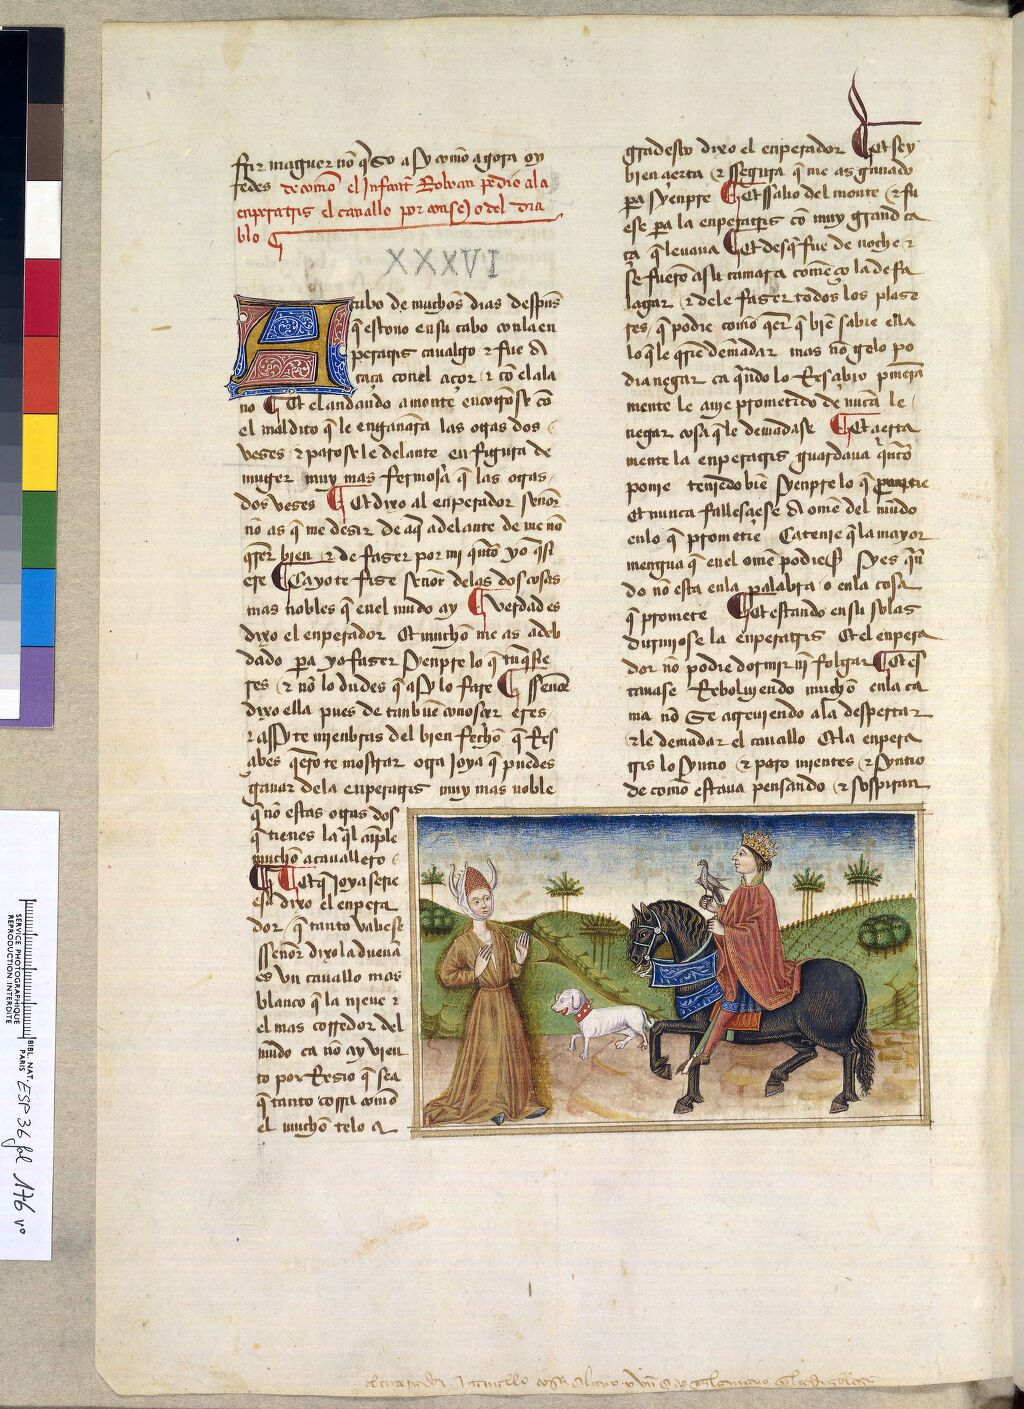 fazer maguer non quiso asy commo agora oy
redes de commo el Infante Roboan pedio a la
enperatris el cauallo por consejo del dia
blo
XXXVI
A cabo de muchos dias despues
que estouo en su cabo con la en
peratris caualgo & fue a
caça con el açor & con el ala
no Et el andando a monte encogose con
el maldito que le engannara las otras dos
veses & parosele delante en figura de
muger muy mas fermosa que las otras
dos veses Et dixo al enperador señor
non as que me desir de aqui adelante de me non
querer bien & de faser por mi quanto yo quesi
ere Ca yo te fise señor de las dos cosas
mas nobles que en el mundo ay verdad es
dixo el enperador Et mucho me as adeb
dado para yo faser syenpre lo que tu quesie
res & non lo dudes que asy lo fare Señor
dixo ella pues de tan buen conoscer eres
& asy te mienbras del bien fecho que Res
çabes quiero te mostrar otra joya que puedes
ganar de la enperatris muy mas noble
que non estas otras dos
que tienes la qual cunple
mucho a cauallero
Et que joya serie
esa dixo el enpera
dor que tanto valiese
Señor dixo la dueña
es vn cauallo mas
blanco que la nieue &
el mas corredor del
mundo ca non ay vien
to por Resio que sea
que tanto corra commo
el mucho telo a
gradesco dixo el enperador Et sey
bien çierta & segura que me as ganado
para syenpre Et salio del monte & fu
ese para la enperatris con muy grand ca
ça que leuaua Et desque fue de noche &
se fueron a su camara començola de fa
lagar & dele faser todos los plase
res que podie commo quier que bien sabie ella
lo que le querie demandar mas non gelo po
dia negar ca quando lo Resçibio primera
mente le avie prometido de nunca le
negar cosa que le demandase Et çierta
mente la enperatris guardaua quanto
ponie teniendo bien syenpre lo que prometie
Et nunca fallesçiese a omen del mundo
en lo que prometie Ca tenie que la mayor
mengua que en el omen podie ser sy es quan
do non esta en la palabra o en la cosa
que promete Et estando en su solas
durmiose la enperatris Et el enpera
dor non podie dormir nin folgar Et es
tauase Reboluiendo mucho en la ca
ma non se atreuiendo a la despertar
& le demandar el cauallo Et la enpera
tris lo syntio & paro mientes & syntio
de commo estaua pensando & sospiran
BIBL. NAT.
PARIS
SERVICE PHOTOGRAPHIQUE
REPRODUCTION INTERDITE
ESP 36 fol 176 vo